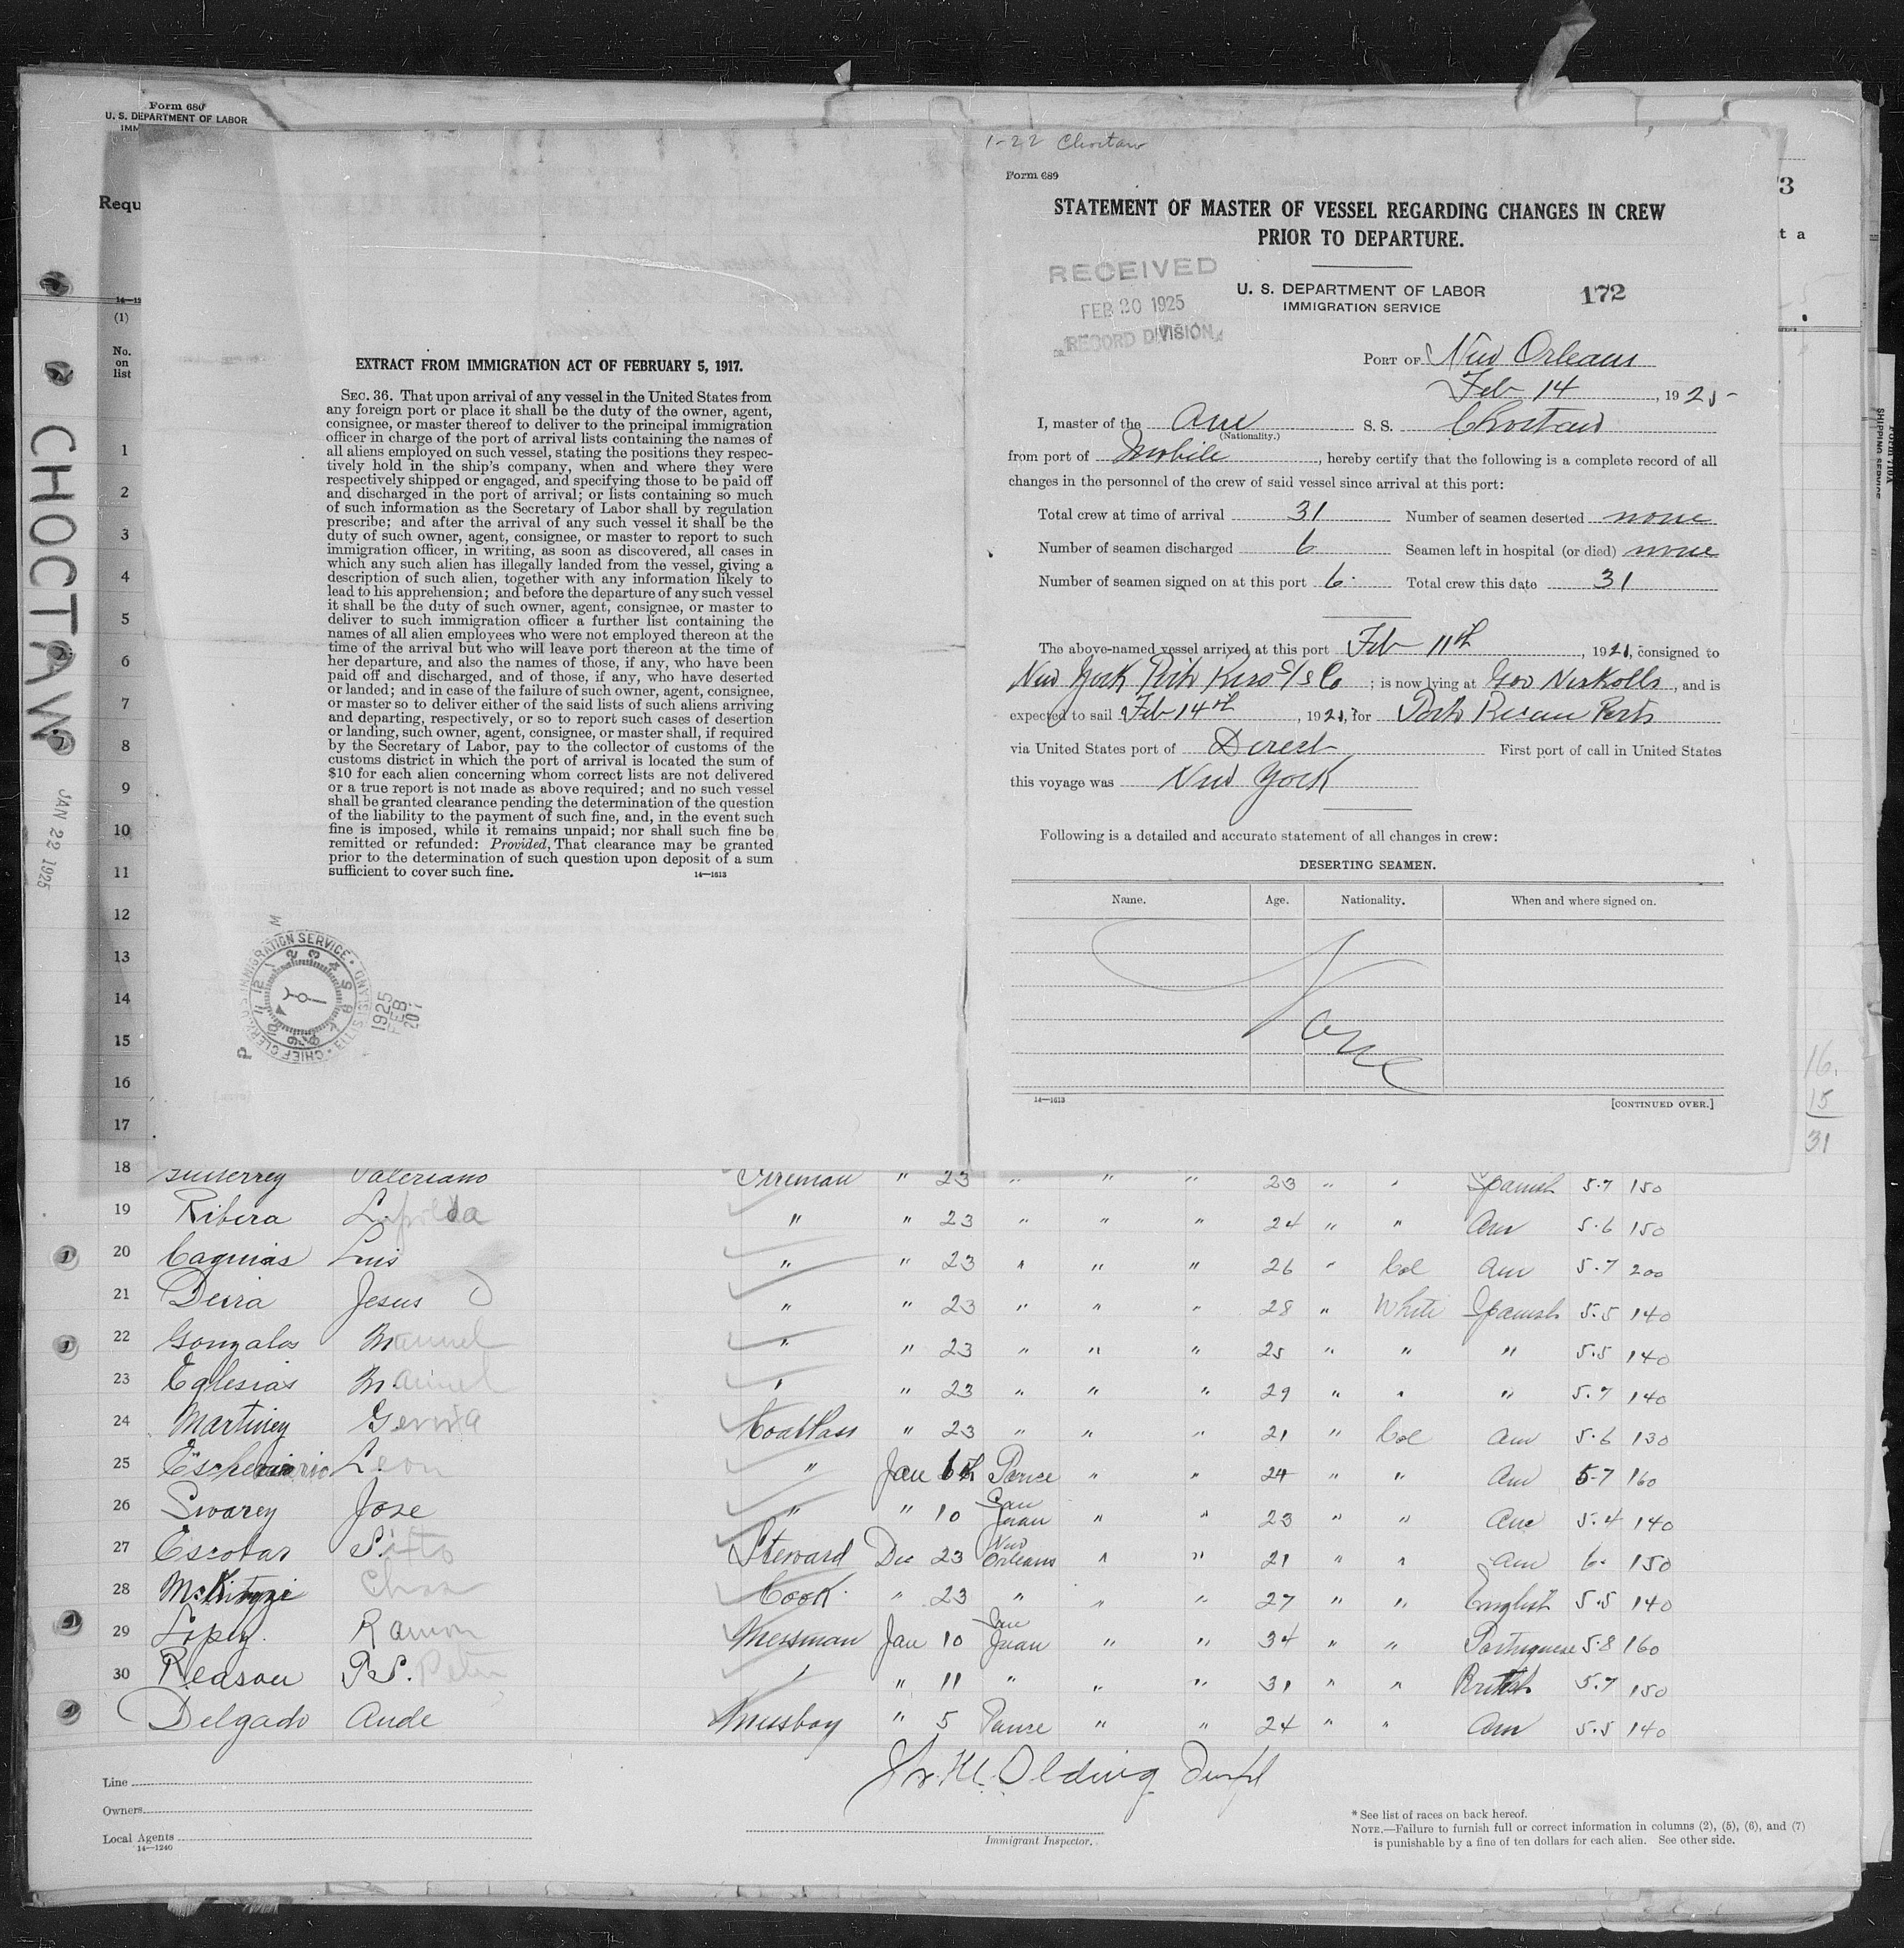 Form 680
U. S. DEPARTMENT OF LABOR
IMM
Requ
14—12
(1)
No.
on
list
CHOCTAW
JAN 22 1925
EXTRACT FROM IMMIGRATION ACT OF FEBRUARY 5, 1917.
SEC. 36. That upon arrival of any vessel in the United States from
any foreign port or place it shall be the duty of the owner, agent,
consignee, or master thereof to deliver to the principal immigration
officer in charge of the port of arrival lists containing the names of
all aliens employed on such vessel, stating the positions they respec-
tively hold in the ship's company, when and where they were
respectively shipped or engaged, and specifying those to be paid off
and discharged in the port of arrival; or lists containing so much
of such information as the Secretary of Labor shall by regulation
prescribe; and after the arrival of any such vessel it shall be the
duty of such owner, agent, consignee, or master to report to such
immigration officer, in writing, as soon as discovered, all cases in
which any such alien has illegally landed from the vessel, giving a
description of such alien, together with any information likely to
lead to his apprehension; and before the departure of any such vessel
it shall be the duty of such owner, agent, consignee, or master to
deliver to such immigration officer a further list containing the
names of all alien employees who were not employed thereon at the
time of the arrival but who will leave port thereon at the time of
her departure, and also the names of those, if any, who have been
paid off and discharged, and of those, if any, who have deserted
or landed; and in case of the failure of such owner, agent, consignee,
or master so to deliver either of the said lists of such aliens arriving
and departing, respectively, or so to report such cases of desertion
or landing, such owner, agent, consignee, or master shall, if required
by the Secretary of Labor, pay to the collector of customs of the
customs district in which the port of arrival is located the sum of
$10 for each alien concerning whom correct lists are not delivered
or a true report is not made as above required; and no such vessel
shall be granted clearance pending the determination of the question
of the liability to the payment of such fine, and, in the event such
fine is imposed, while it remains unpaid; nor shall such fine be
remitted or refunded: Provided, That clearance may be granted
prior to the determination of such question upon deposit of a sum
sufficient to cover such fine. 14—1613
U.S. IMMIGRATION SERVICE · ELLIS ISLAND · CHIEF CLERK
1925
FEB
20
1-22 Choctaw
Form 689
STATEMENT OF MASTER OF VESSEL REGARDING CHANGES IN CREW
PRIOR TO DEPARTURE.
RECEIVED
FEB 20 1925
RECORD DIVISION
U. S. DEPARTMENT OF LABOR
IMMIGRATION SERVICE
172
PORT OF New Orleans
Feb 14, 1925
I, master of the Am S. S. Choctaw
(Nationality.)
from port of Mobile, hereby certify that the following is a complete record of all
changes in the personnel of the crew of said vessel since arrival at this port:
Total crew at time of arrival 31 Number of seamen deserted none
Number of seamen discharged 6 Seamen left in hospital (or died) none
Number of seamen signed on at this port 6. Total crew this date 31
The above-named vessel arrived at this port Feb 11th, 1925, consigned to
New York Port Rico S/S Co; is now lying at, and is
expected to sail Feb 14th, 1925, for Porto Rican Ports
via United States port of Direct First port of call in United States
this voyage was New York
Following is a detailed and accurate statement of all changes in crew:
DESERTING SEAMEN.
Name. Age. Nationality. When and where signed on.
None
14—1613 [CONTINUED OVER.]
16.
15
31
1
2
3
4
5
6
7
8
9
10
11
12
13
14
15
16
17
18 Gutierrey Valeriano Fireman " 23 " " " 23 " " Spanish 5.7 150
19 Ribera Lepolda " " 23 " " " 24 " " Am 5.6 150
20 Caquias Luis " " 23 " " " 26 " Col Am 5.7 200
21 Deira Jesus " " 23 " " " 28 " White Spanish 5.5 140
22 Gonzalos Manuel " " 23 " " " 25 " " " 5.5 140
23 Eglesias Manuel " " 23 " " " 29 " " " 5.7 140
24 Martiney Coal Pass " 23 " " " 21 " Col Am 5.6 130
25 Leon " Jan 6th Ponce " " 24 " " Am 5.7 160
26 Swarey Jose " " 10 San Juan " " 23 " " Am 5.4 140
27 Escobar Sixto Steward Dec 23 New Orleans " " 21 " " Am 6. 150
28 Chas Cook " 23 " " " 27 " " English 5.5 140
29 Lopey. Ramon Messman Jan 10 San Juan " " 34 " " Portuguese 5.8 160
30 Reason P.S. Peter " " 11 " " " 31 " " British 5.7 150
Delgado Aude Messboy " 5 Ponce " " 24 " " Am 5.5 140
Line
Owners
Local Agents
14—1240
Immigrant Inspector.
* See list of races on back hereof.
NOTE.—Failure to furnish full or correct information in columns (2), (5), (6), and (7)
is punishable by a fine of ten dollars for each alien. See other side.